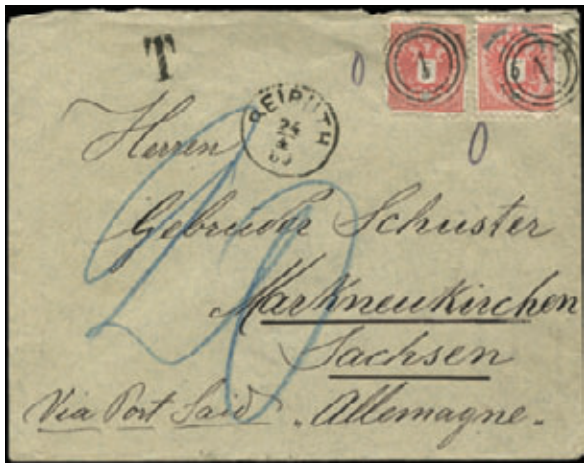 T
0
BEIRUTH
24
0
Herren
20
Gebrüder Schuster
Markneukirchen
Sachsen
Via Port Said. Allemagne.